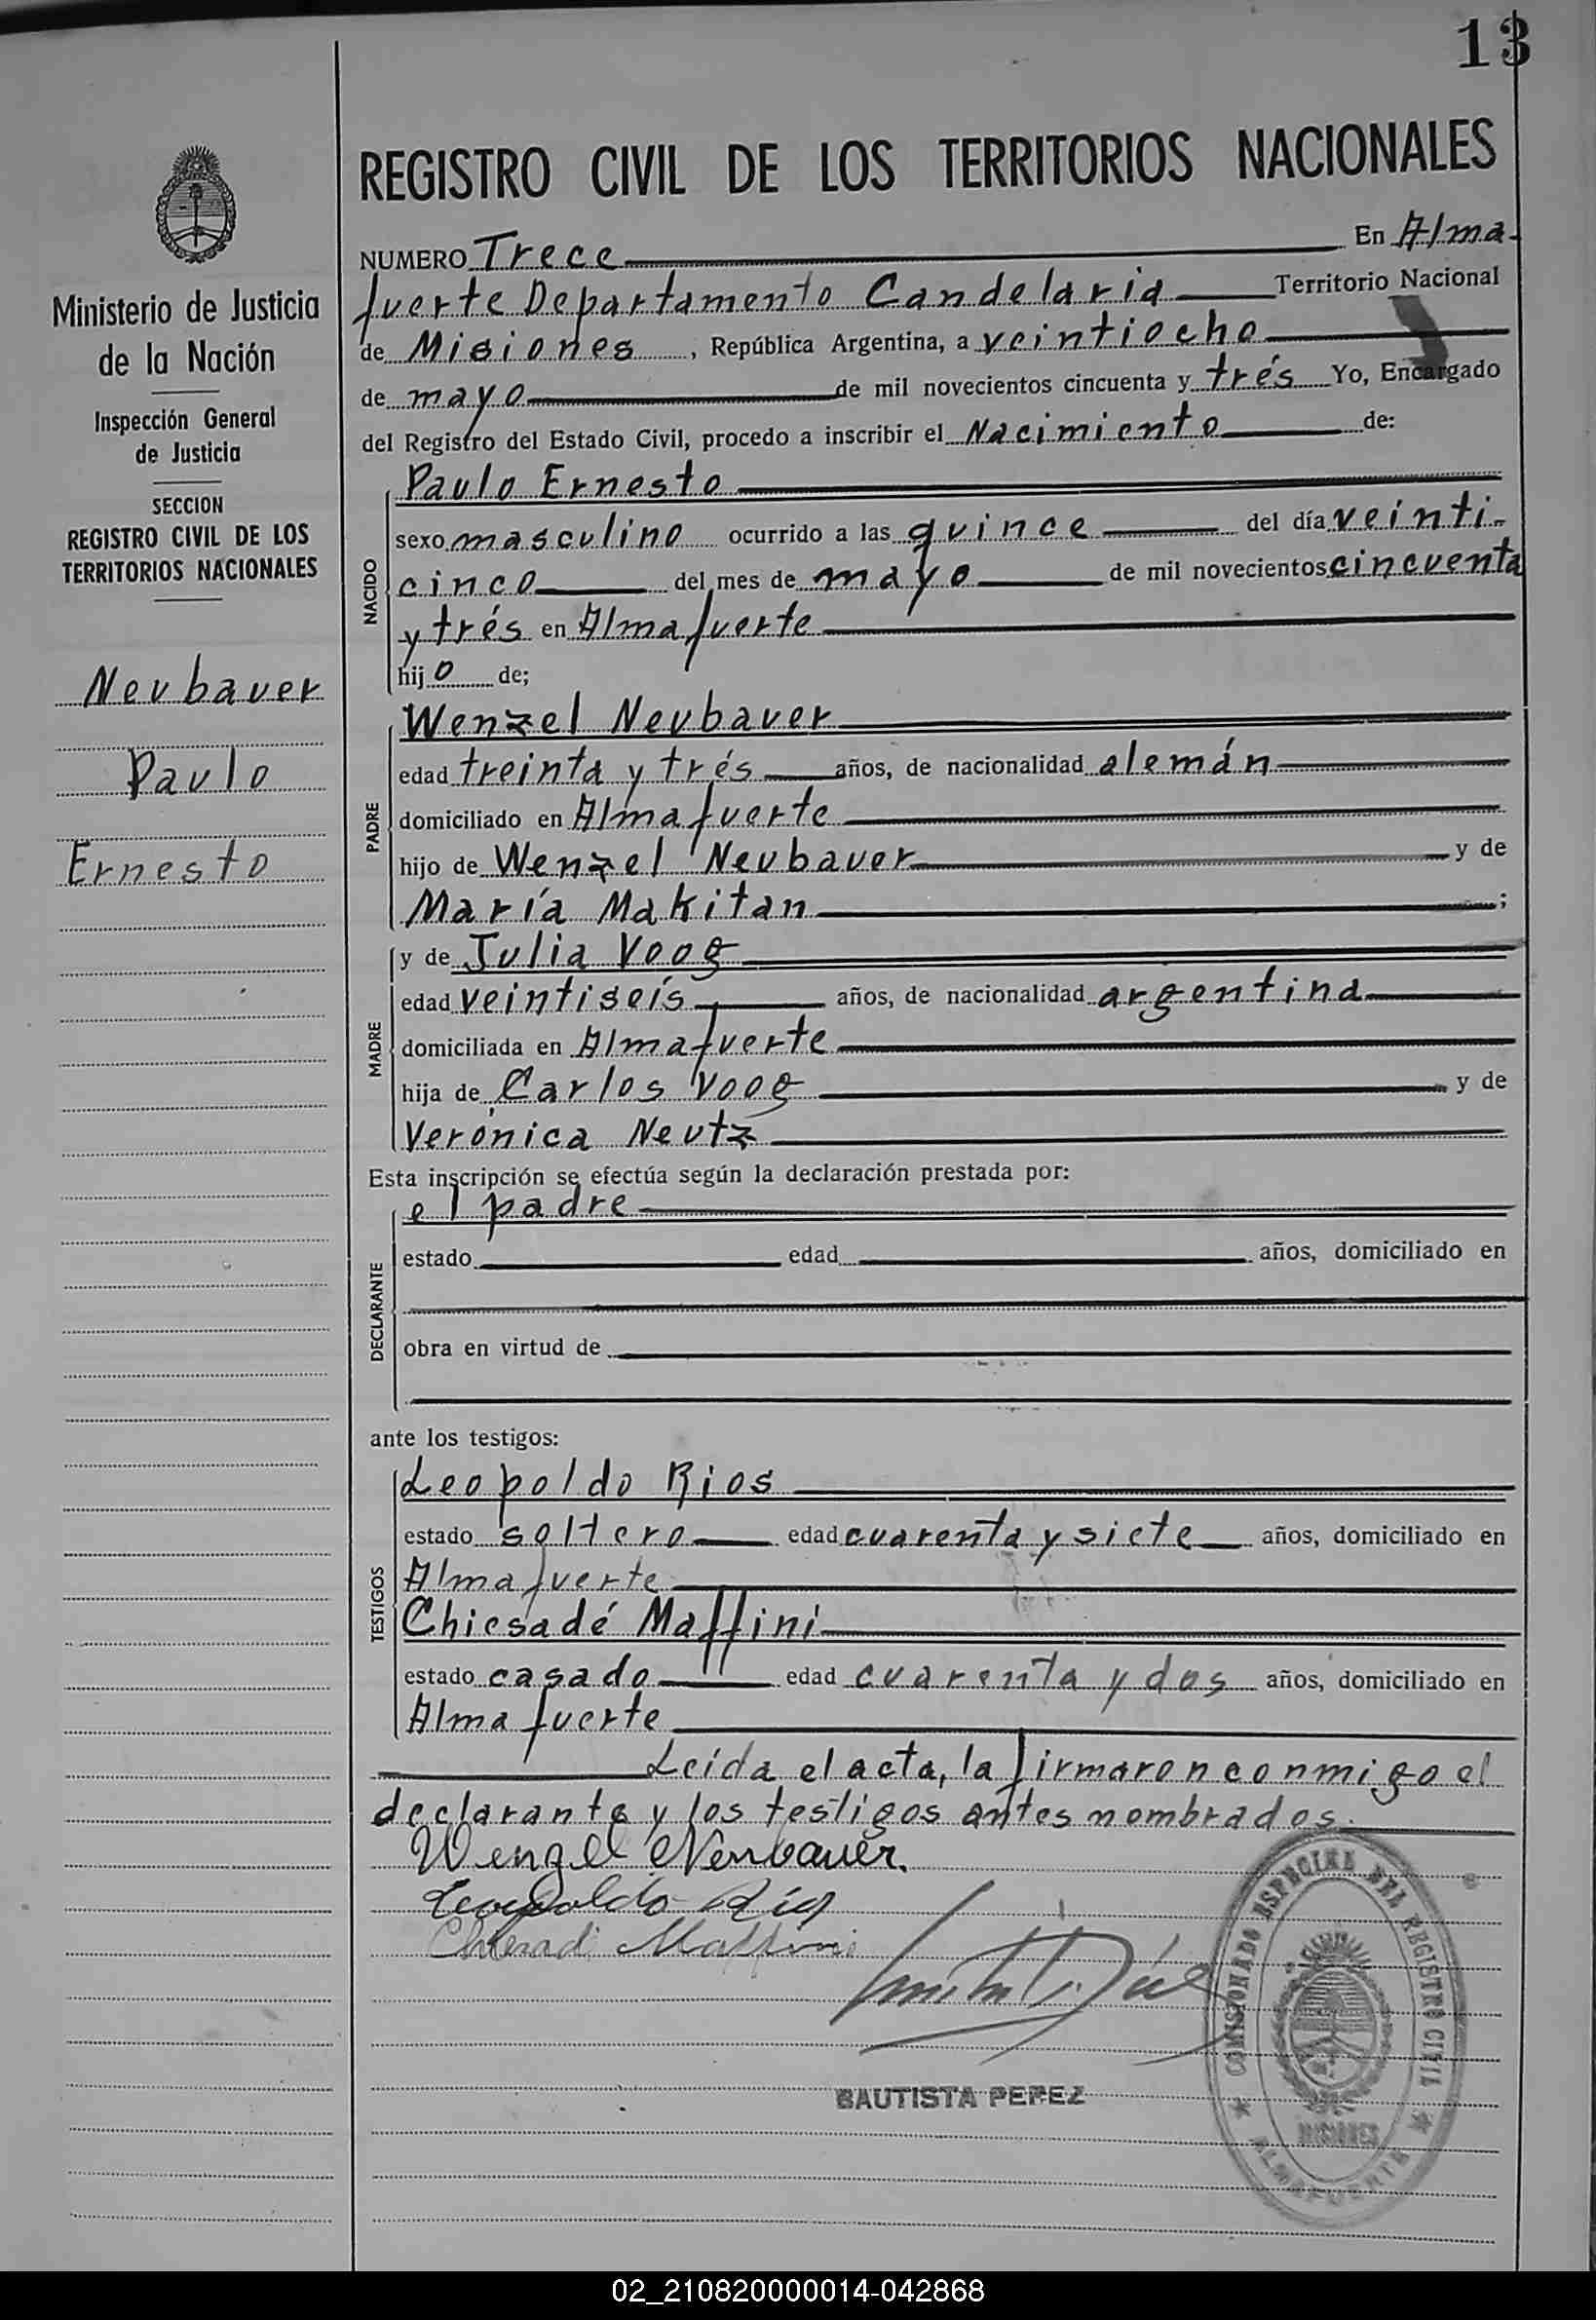 13
Ministerio de Justicia
de la Nación
Inspección General
de Justicia
SECCION
REGISTRO CIVIL DE LOS
TERRITORIOS NACIONALES
Neubauer
Paulo
Ernesto
REGISTRO CIVIL DE LOS TERRITORIOS NACIONALES
NUMERO Trece En Alma-
fuerte Departamento Candelaria Territorio Nacional
de Misiones, República Argentina, a veintiocho
de mayo de mil novecientos cincuenta y trés Yo, Encargado
del Registro del Estado Civil, procedo a inscribir el Nacimiento de:
NACIDO
Paulo Ernesto
sexo masculino ocurrido a las quince del día veinti-
cinco del mes de mayo de mil novecientos cincuenta
y trés en Almafuerte
hijo de;
PADRE
Wenzel Neubauer
edad treinta y trés años, de nacionalidad alemán
domiciliado en Almafuerte
hijo de Wenzel Neubauer y de
María Makitan;
MADRE
y de Julia Voog
edad veintiseís años, de nacionalidad argentina
domiciliada en Almafuerte
hija de Carlos Voog y de
Verónica Neutz
Esta inscripción se efectúa según la declaración prestada por:
DECLARANTE
el padre
estado edad años, domiciliado en
obra en virtud de
ante los testigos:
TESTIGOS
Leopoldo Rios
estado soltero edad cuarenta y siete años, domiciliado en
Almafuerte
Chiesadé Maffini
estado casado edad cuarenta y dos años, domiciliado en
Almafuerte
Leída el acta, la firmaron conmigo el
declarante y los testigos antes nombrados.
Wenzel Neubauer.
Leopoldo Ríos
Maffini
BAUTISTA PEREZ
COMISIONADO ESPECIAL DEL REGISTRO CIVIL
MISIONES
ALMAFUERTE
02_210820000014-042868